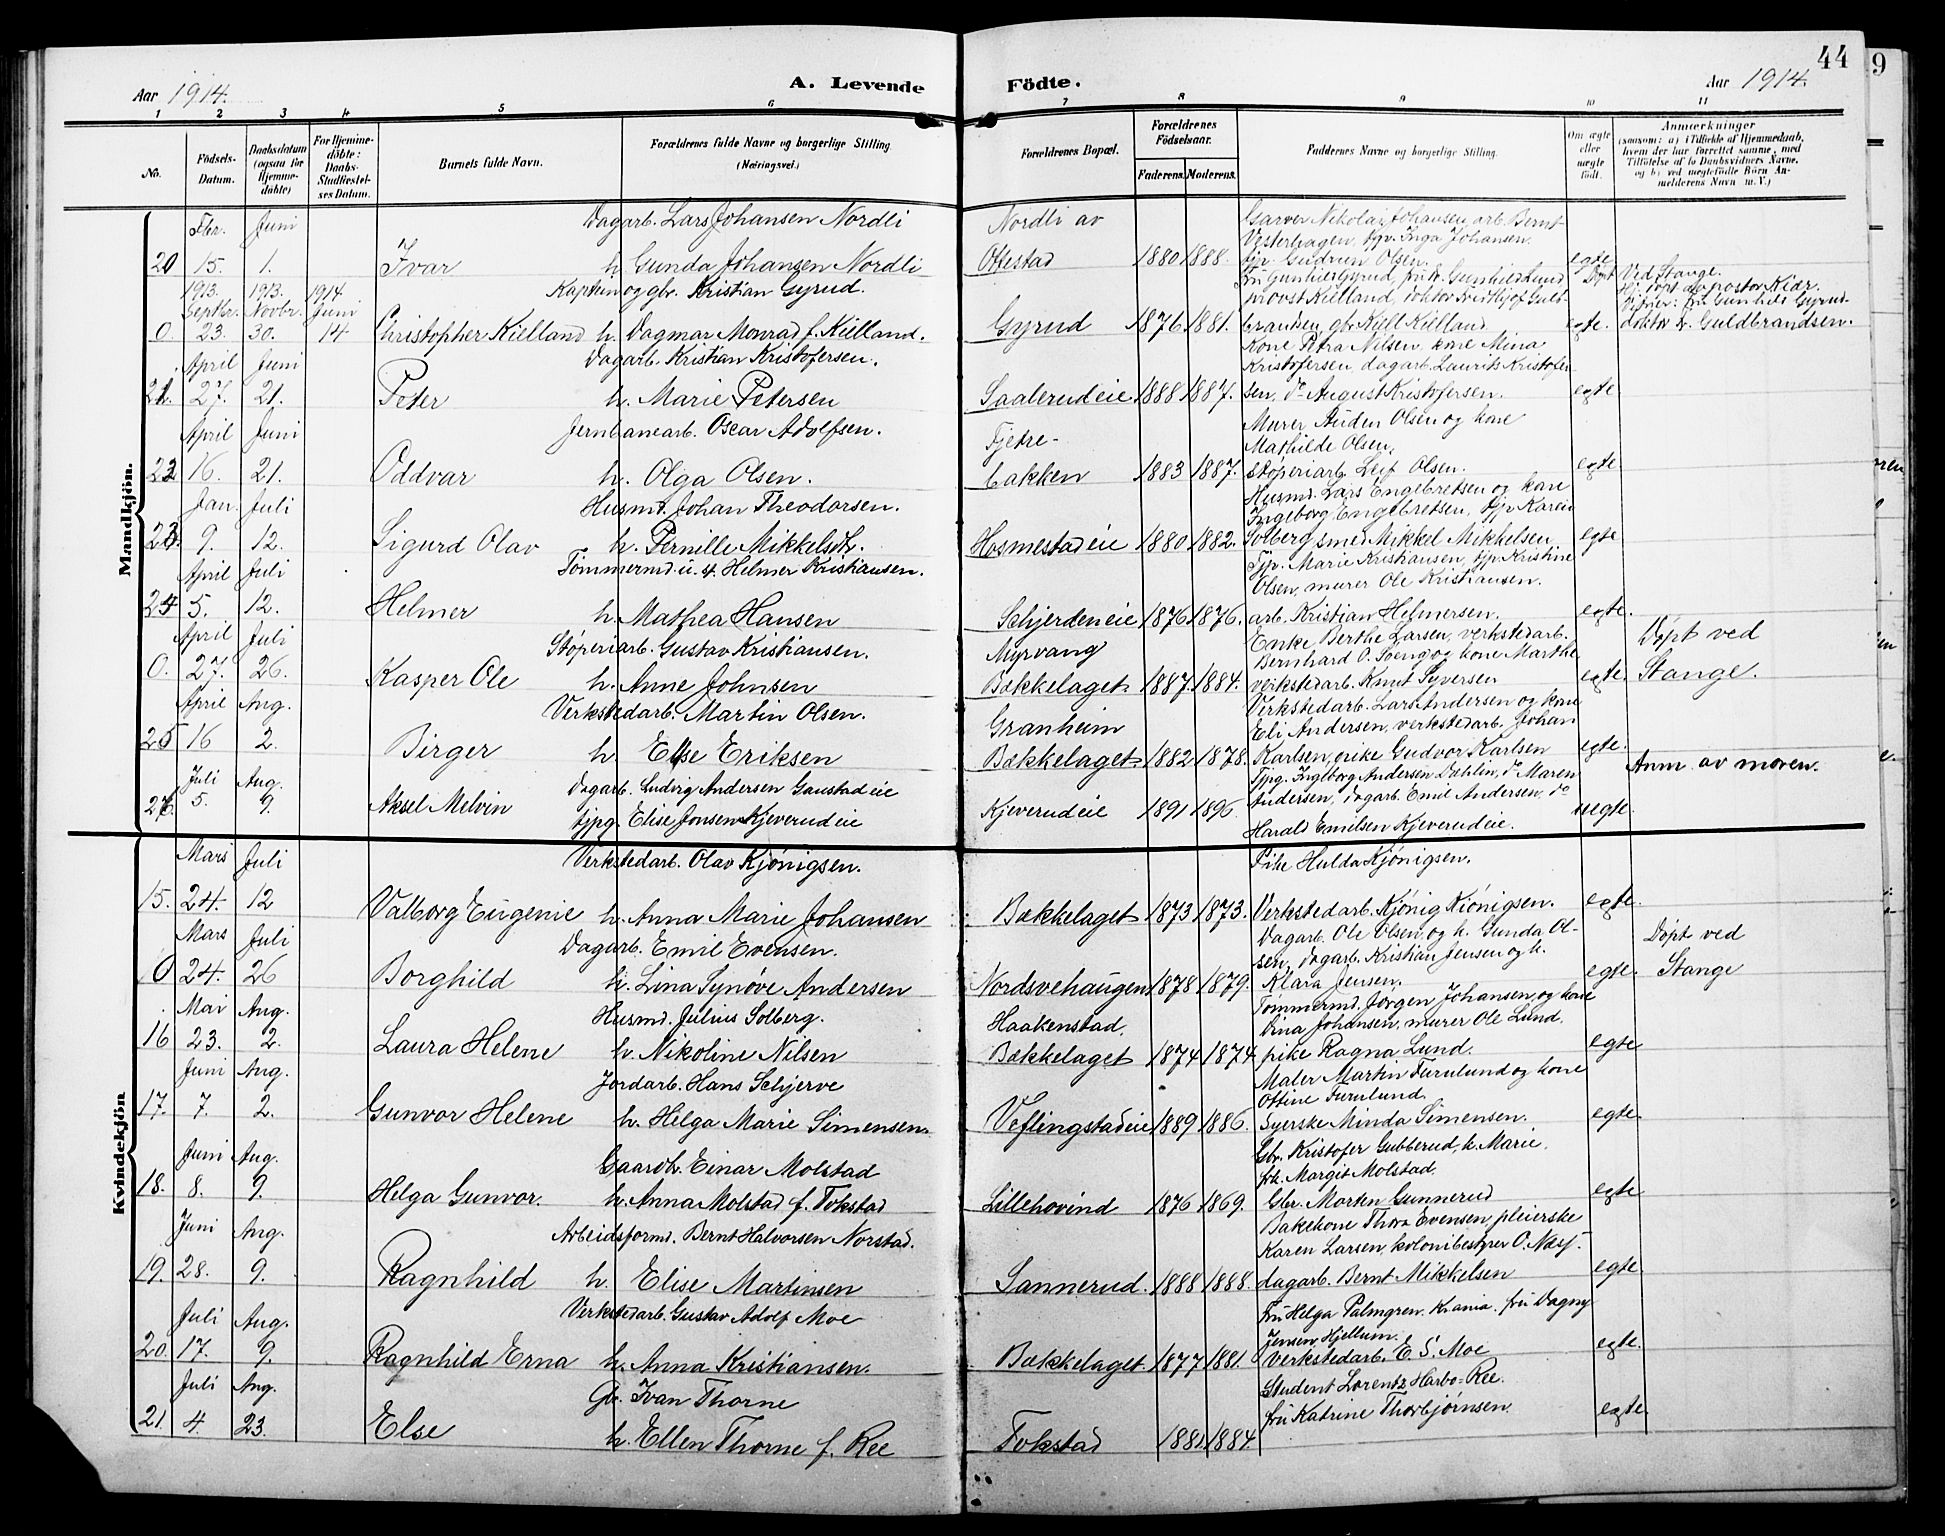 44
9
Aar 1914.
A. Levende
Födte.
Aar 1914.
1 2 3 4 5 6 7 8 9 10 11
No.
Födsels-Datum.
Daabsdatum (ogsaa for Hjemmedöbte)
For Hjemmedöbte: Daabs-Stadfæstelses Datum.
Barnets fulde Navn.
Forældrenes fulde Navne og borgerlige Stilling (Næringsvei.)
Forældrenes Bopæl.
Forældrenes Födselsaar.
Faderens. Moderens.
Faddernes Navne og borgerlige Stilling.
Om ægte eller uægte födt.
Anmærkninger (saasom: a) i Tilfælde af Hjemmedaab, hvem der har forrettet samme, med Tilföielse af to Daabsvidners Navne, og b) ved uægtefödte Börn Anmelderens Navn m. V.)
Mandkjön.
Febr. Juni Dagarb. Lars Johansen Nordli Nordli av Garver Nikolai Johansen, arb. Bernt
Vesterhagen, tpv. Inga Johansen
20 15. 1. Ivar h. Gunda Johansen Nordli Ottestad 1880 1888. tjp. Gudrun Olsen. egte
1913. 1913. 1914 Kaptein og gbr. Kristian Gyrud. Fru Gunhild Gyrud, Gunhild Lund Døpt Ved Stange.
Septbr. Novbr. Juni provst Kielland, doktor Fridthjof Guld- Hj. døpt av pastor Kiær.
Vitner: fru Gunhild Gyrud-
0. 23. 30. 14 Christopher Kielland h. Dagmar Monrad f. Kielland. Gyrud 1876 1881. brandsen, gbr. Kiell Kielland egte. doktor Fr. Guldbrandsen.
April Juni Dagarb. Kristian Kristofersen. Kone Petra Nilsen, kone Mina
Kristofersen, dagarb. Laurits Kristofer-
21. 27. 21. Peter h. Marie Petersen Saalerudeie 1888 1887. sen, do August Kristofersen. egte
April Juni Jernbanearb. Oscar Adolfsen. Tjetre- Murer Auden Olsen og kone
Mathilde Olsen,
22 16. 21. Oddvar h. Olga Olsen. bakken 1883 1887. støperiarb. Leif Olsen. egte
Jan. Juli Husmd. Johan Theodorsen. Husmd. Lars Engebretsen og kone
Ingeborg Engebretsen, tjp Karen
23. 9. 12. Sigurd Olav h. Pernille Mikkelsdtr. Hosmestadeie 1880 1882. Solberg, smed Mikkel Mikkelsen egte
April Juli Tømmermd. u. 4. Helmer Kristiansen. Tjp. Marie Kristiansen, tjp. Kristine
Olsen, murer Ole Kristiansen.
24 5. 12. Helmer h. Mathea Hansen Schjerdeneie 1876 1876. arb. Kristian Helmersen. egte.
April Juli Støperiarb. Gustav Kristiansen. Myrvang Enke Berthe Larsen, verkstedarb. Døpt ved
Bernhard O. Poeng og kone Marthe
0. 27. 26. Kasper Ole h. Anne Johnsen Bækkelaget 1887. 1884. verkstedarb. Knut Syversen egte. Stange.
April Aug. Verkstedarb. Martin Olsen. Granheim Verkstedarb. Lars Andersen og kone
Eli Andersen, verkstedarb. Johan
25 16 2. Birger h. Else Eriksen Bækkelaget 1882 1878. Karlsen, pike Gudvor Karlsen egte.
Juli Aug. Dagarb. Ludvig Andersen Gaustadeie Tjpg. Ingeborg Andersen Dahlin, do Maren Anm. av moren.
26. 5. 9. Aksel Melvin tjpg. Elise Jonsen Kjeverudeie Kjeverudeie 1891 1896. Andersen, dagarb. Emil Andersen, do uegte.
Harald Emilsen Kjeverudeie.
Kvindekjön
Mars Juli Verkstedarb. Olav Kjønigsen. Pike Hulda Kjønigsen.
15. 24. 12 Valborg Eugenie h. Anna Marie Johansen Bækkelaget 1873 1873. Verkstedarb. Kjønig Kiønigsen. egte.
Mars Juli Dagarb. Emil Evensen. Dagarb. Ole Olsen og h. Gunda Ol- Døpt ved
sen, dagarb. Kristian Jensen og h.
0 24. 26 Borghild h. Lina Synøve Andersen Nordsvehaugen 1878 1879. Klara Jensen. egte. Stange
Mai Aug. Husmd. Julius Solberg. Haakenstad. Tømmermd. Jørgen Johansen og kone
Dina Johansen, murer Ole Lund.
16 23. 2. Laura Helene h. Nikoline Nilsen Bækkelaget 1874 1874. pike Ragna Lund. egte
Juni Aug. Jordarb. Hans Schjerve Maler Martin Furulund og kone
Ottine Furulund.
17. 7. 2. Gunvor Helene h. Helga Marie Simensen. Veflingstadeie 1889 1886. Syerske Minda Simensen. egte.
Juni Aug. Gaardbr. Einar Molstad Gbr. Kristofer Gubberud, h. Marie.
frk. Margit Molstad.
18. 8. 9. Helga Gunvor. h. Anna Molstad f. Tokstad Lillehovind 1876 1869. Gbr. Morten Gunnerud egte
Juni Aug. Arbeidsformd. Bernt Halvorsen Norstad. Bakekone Thora Evensen, pleierske
Karen Larsen, kolonibestyrer O. Næsf.
19. 28. 9. Ragnhild h. Elise Martinsen Sannerud. 1888 1888. dagarb. Bernt Mikkelsen egte
Juli Aug. Verkstedarb. Gustav Adolf Moe Fru Helga Palmgren. Krania. fru Dagny
Jensen Hjellum.
20. 17. 9. Ragnhild Erna h. Anna Kristiansen. Bækkelaget. 1877 1881. verkstedarb. E. S. Moe egte.
Juli Aug. Gbr. Ivan Thorne Student Lorentz Harbo-Ree.
21. 4. 23. Else h. Ellen Thorne f. Ree Tokstad 1881 1884. fru Katrine Thorbjørnsen. egte.